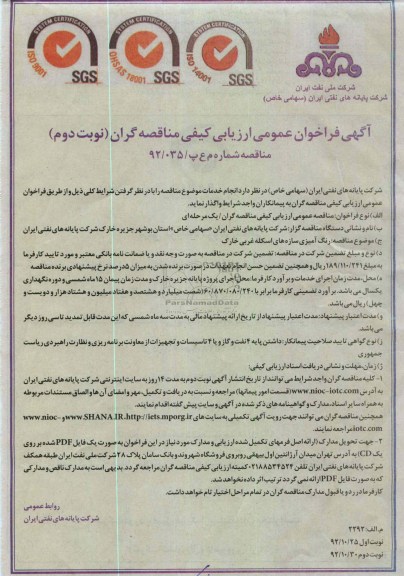 SYSTEM CERTIFICATION
ISO 9001
SGS
SYSTEM CERTIFICATION
OHSAS 18001
SGS
SYSTEM CERTIFICATION
ISO 14001
SGS
شرکت ملی نفت ایران
شرکت پایانه های نفتی ایران (سهامی خاص)
آگهی فراخوان عمومی ارزیابی کیفی مناقصه گران (نوبت دوم)
مناقصه شماره م ع پ/۹۲/۰۳۵
شرکت پایانه‌های نفتی ایران (سهامی خاص) در نظر دارد انجام خدمات موضوع مناقصه را با در نظر گرفتن شرایط کلی ذیل و از طریق فراخوان
عمومی ارزیابی کیفی مناقصه گران به پیمانکاران واجد شرایط واگذار نماید.
الف) نوع فراخوان: مناقصه عمومی ارزیابی کیفی مناقصه گران / یک مرحله ای
ب) نام و نشانی دستگاه مناقصه گزار: شرکت پایانه های نفتی ایران (سهامی خاص)، استان بوشهر جزیره خارک شرکت پایانه های نفتی ایران
ج) موضوع مناقصه: رنگ آمیزی سازه های اسکله غربی خارک
د) نوع و مبلغ تضمین شرکت در مناقصه: تضمین شرکت در مناقصه به صورت وجه نقد و یا ضمانت نامه بانکی معتبر و مورد تایید کارفرما
به مبلغ ۱۸۹/۱۱۰/۲۴۱ ریال و همچنین تضمین حسن انجام تعهدات در صورت برنده شدن به میزان ۵ درصد نرخ پیشنهادی برنده مناقصه
ه) محل، مدت زمان اجرای خدمات و برآورد کارفرما: محل اجرای پروژه پایانه جزیره خارک و مدت زمان پیمان ۱۵ ماه شمسی و دوره نگهداری
یکسال می باشد. برآورد تضمینی کارفرما برابر با ۸/۱۶۰/۸۷۰/۰۸۰/۲۴۰ (هشت میلیارد و هشتصد و هفتاد میلیون و هشتاد هزار و دویست و
چهل) ریال می باشد.
و) مدت اعتبار پیشنهاد: مدت اعتبار پیشنهاد از تاریخ ارائه پیشنهاد مالی به مدت سه ماه شمسی که این مدت قابل تمدید تا سی روز دیگر
می باشد.
ز) نوع گواهی تایید صلاحیت پیمانکار: داشتن پایه ۲ نفت و گاز و یا ۴ تاسیسات و تجهیزات از معاونت برنامه ریزی و نظارت راهبردی ریاست
جمهوری
ژ) زمان، مهلت و نشانی دریافت اسناد ارزیابی کیفی:
۱- کلیه مناقصه گران واجد شرایط می توانند از تاریخ انتشار آگهی نوبت دوم به مدت ۱۴ روز به سایت اینترنتی شرکت پایانه های نفتی ایران
به آدرس www.nioc-iotc.com (قسمت امور پیمانها) مراجعه و نسبت به دریافت و تکمیل، مهر و امضای آن ها و الصاق مستندات مربوطه
به همراه سایر اسناد، مدارک و گواهینامه های ذکر شده در آگهی و سایت پیش گفته اقدام نمایند.
همچنین مناقصه گران می توانند جهت رویت آگهی تکمیلی به سایت های www.SHANA.IR،http://iets.mporg.ir و www.nioc-
iotc.com مراجعه نمایند.
۲- جهت تحویل مدارک (ارائه اصل فرمهای تکمیل شده ارزیابی و مدارک مورد نیاز در این فراخوان به صورت یک فایل PDF شده بر روی
یک CD) به آدرس تهران میدان آرژانتین اول بیهقی روبروی فروشگاه شهروند و بانک سامان پلاک ۲۸ شرکت ملی نفت ایران طبقه همکف
شرکت پایانه های نفتی ایران تلفن ۰۲۱۸۸۵۳۴۵۲۴ کمیته ارزیابی کیفی مناقصه گران مراجعه گردد. بدیهی است به مدارک ناقص و مدارکی
که به صورت فایل PDF ارائه نمی گردد ترتیب اثر داده نخواهد شد.
کارفرما در رد و یا قبول مدارک مناقصه گران در تمام مراحل اختیار تام خواهد داشت.
روابط عمومی
شرکت پایانه های نفتی ایران
م.الف: ۳۲۹۳
نوبت اول ۹۲/۱۰/۲۵
نوبت دوم ۹۲/۱۰/۳۰
ParsNamadData